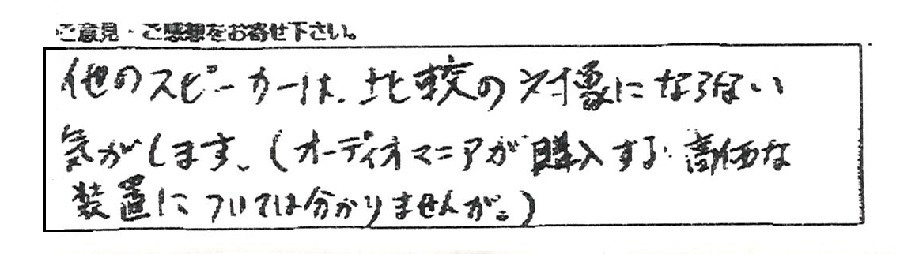 ご意見・ご感想をお寄せ下さい。
他のスピーカーは、比較の対象にならない
気がします、(オーディオマニアが購入する高価な
装置については分かりませんが。)